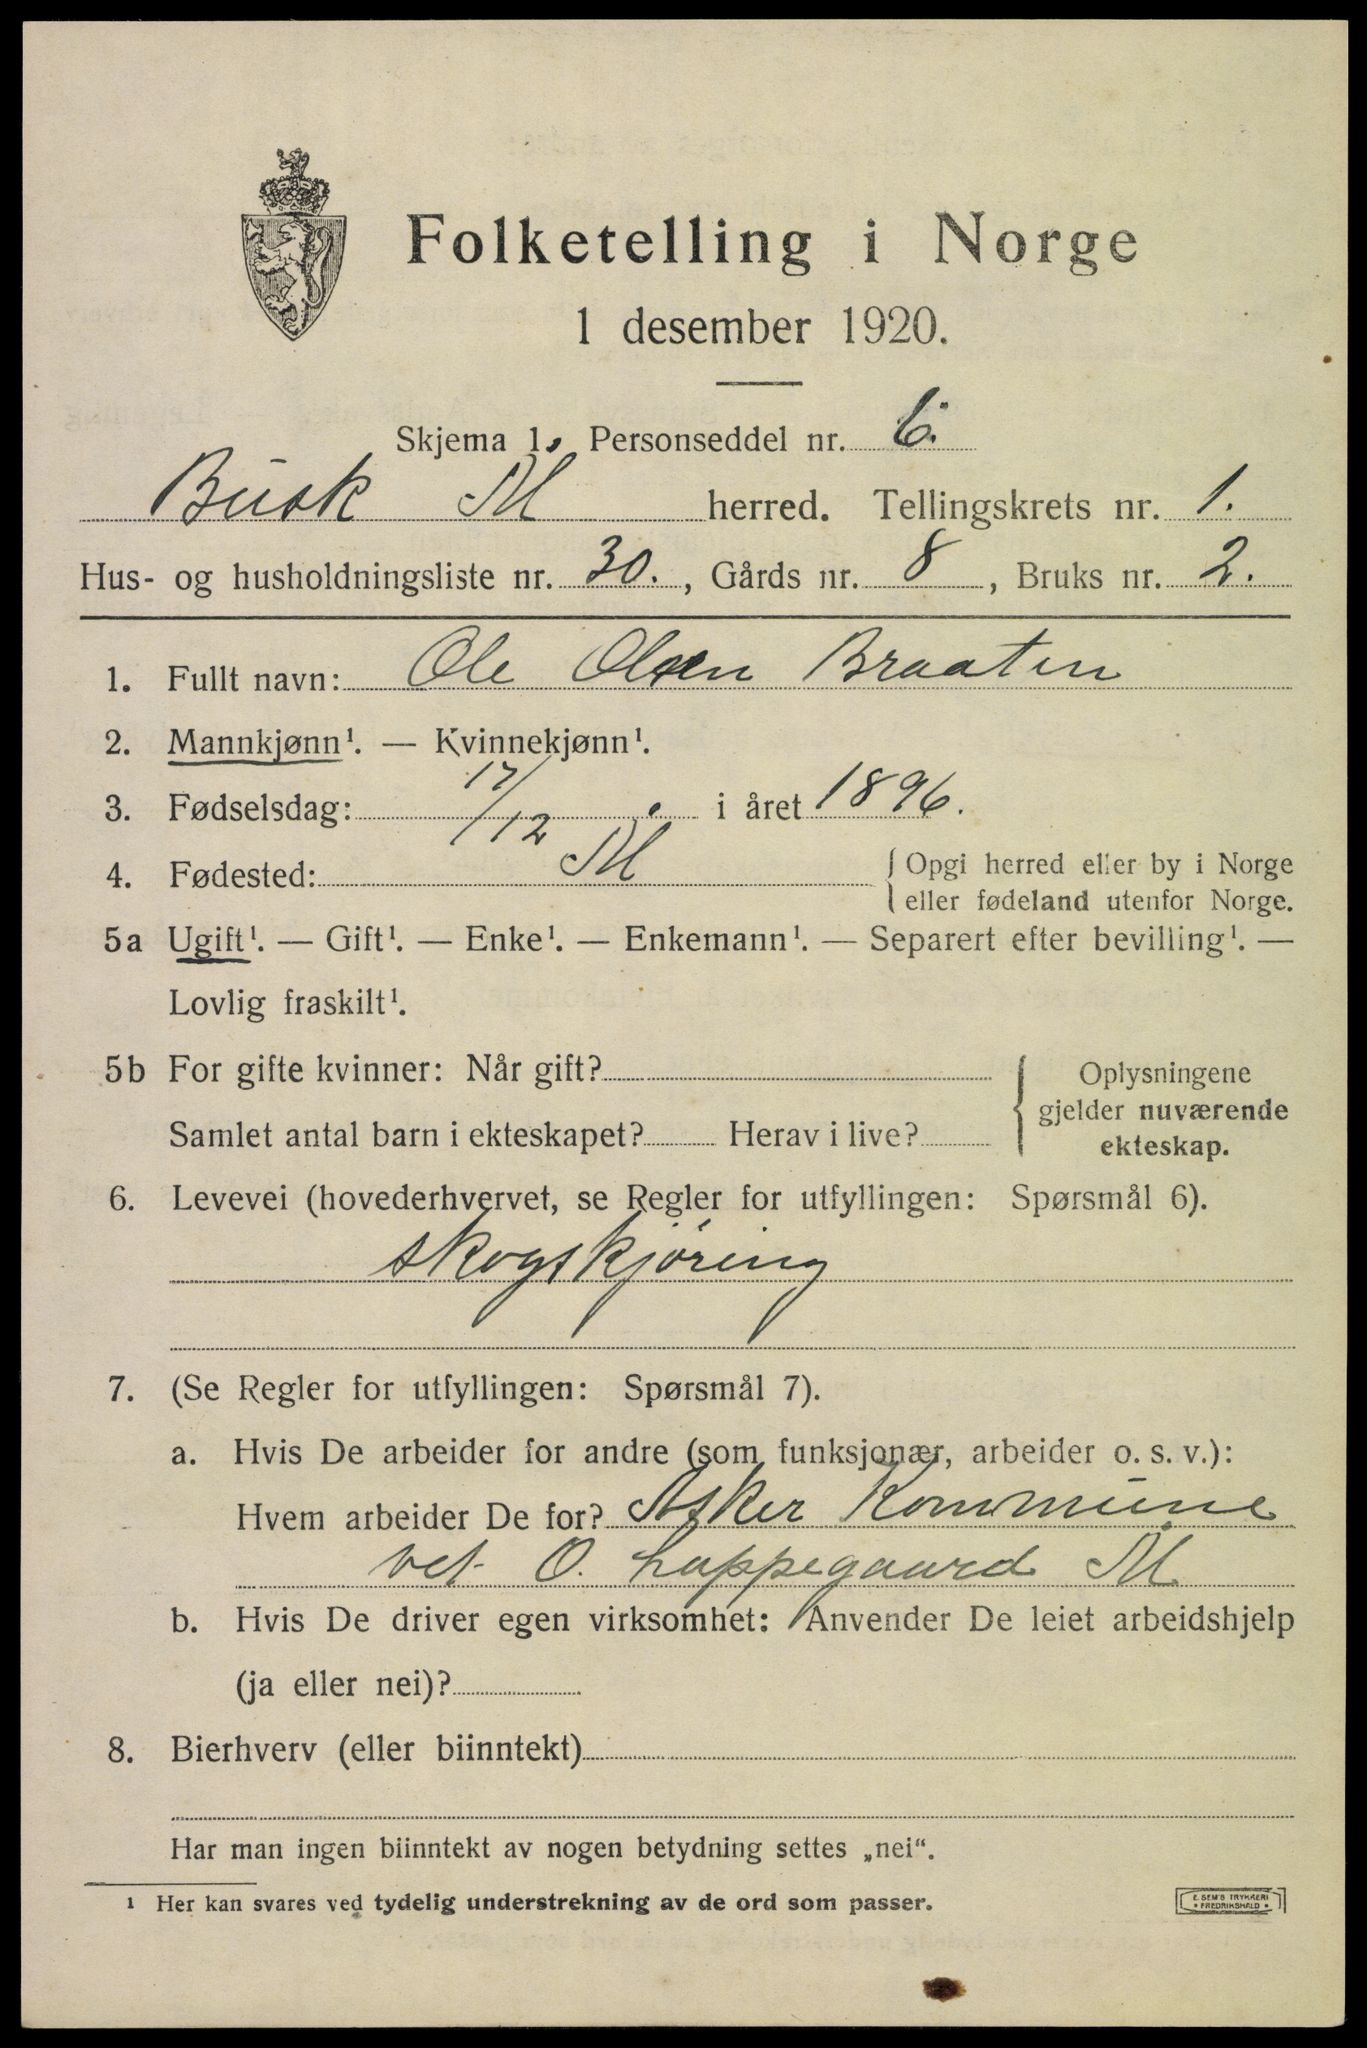 Folketelling i Norge
1 desember 1920.
Skjema 1. Personseddel nr. 6.
Busk Ål herred. Tellingskrets nr. 1.
Hus- og husholdningsliste nr. 30., Gårds nr. 8, Bruks nr. 2.
1. Fullt navn: Ole Olsen Braaten
2. Mannkjønn¹. — Kvinnekjønn¹.
3. Fødselsdag: 17/12 i året 1896.
4. Fødested: Ål { Opgi herred eller by i Norge
eller fødeland utenfor Norge.
5a Ugift¹. — Gift¹. — Enke¹. — Enkemann¹. — Separert efter bevilling¹. —
Lovlig fraskilt¹.
5b For gifte kvinner: Når gift? { Oplysningene
gjelder nuværende
Samlet antal barn i ekteskapet? Herav i live?
ekteskap.
6. Levevei (hovederhvervet, se Regler for utfyllingen: Spørsmål 6).
skogskjøring
7. (Se Regler for utfyllingen: Spørsmål 7).
a. Hvis De arbeider for andre (som funksjonær, arbeider o. s. v.):
Hvem arbeider De for? Asker Kommune
vet O. Lappegaard Ål
b. Hvis De driver egen virksomhet: Anvender De leiet arbeidshjelp
(ja eller nei)?
8. Bierhverv (eller biinntekt)
Har man ingen biinntekt av nogen betydning settes „nei“.
¹ Her kan svares ved tydelig understrekning av de ord som passer.
E. SEM'S TRYKKERI
• FREDRIKSHALD •